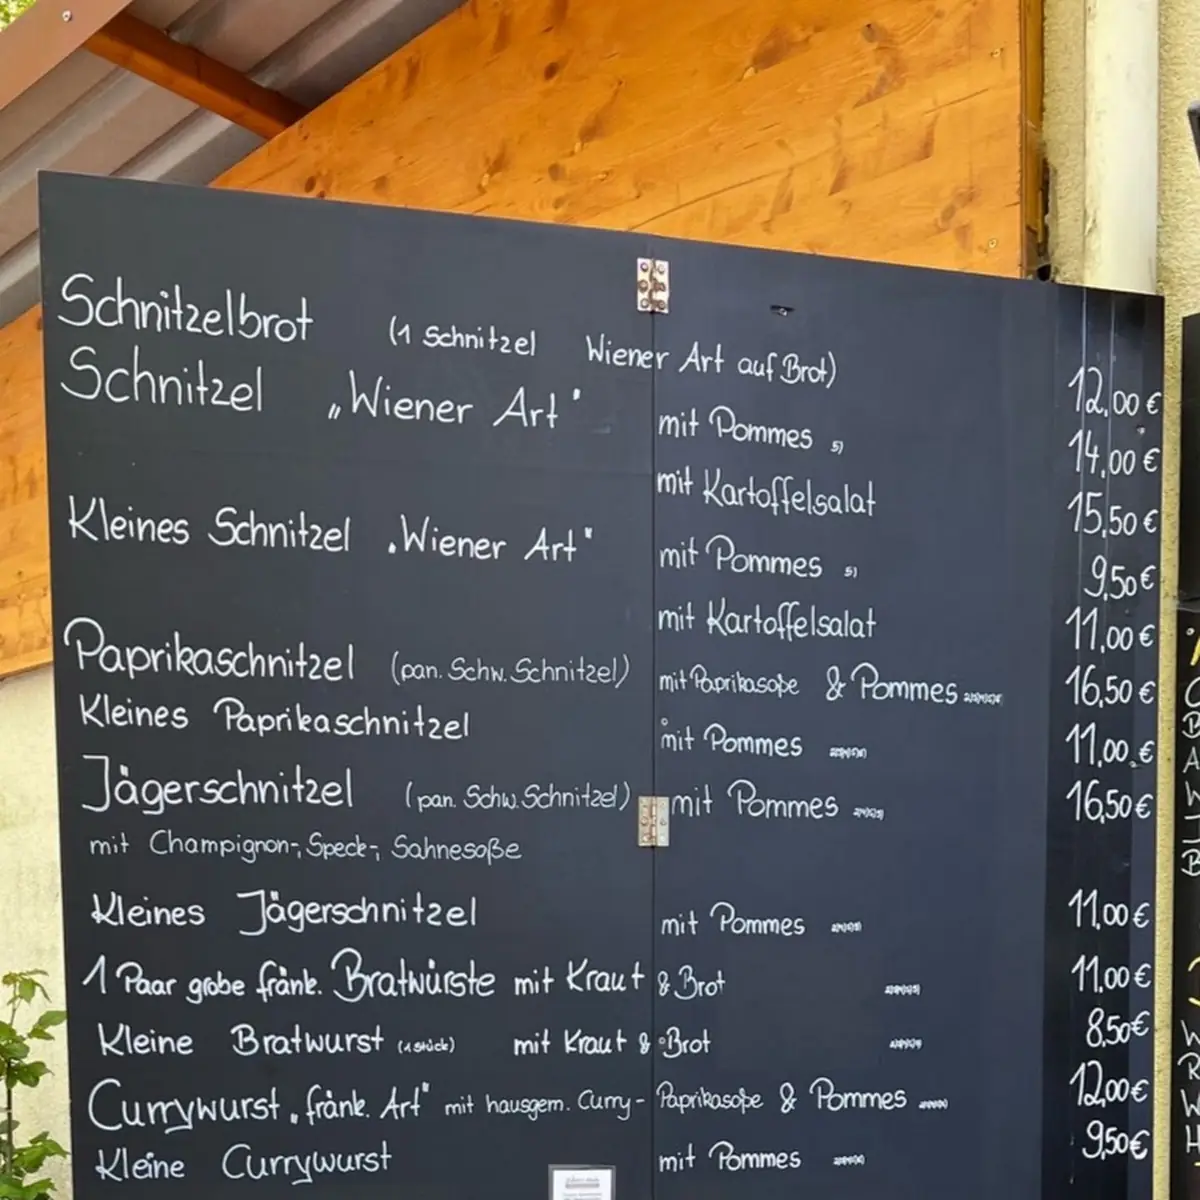 Schnitzelbrot (1 Schnitzel Wiener Art auf Brot) 12,00 €
Schnitzel „Wiener Art" mit Pommes 5) 14,00 €
mit Kartoffelsalat 15,50 €
Kleines Schnitzel „Wiener Art" mit Pommes 5) 9,50 €
mit Kartoffelsalat 11,00 €
Paprikaschnitzel (pan. Schw. Schnitzel) mit Paprikasoße & Pommes 16,50 €
Kleines Paprikaschnitzel mit Pommes 11,00 €
Jägerschnitzel (pan. Schw. Schnitzel) mit Pommes 16,50 €
mit Champignon-, Speck-, Sahnesoße
Kleines Jägerschnitzel mit Pommes 11,00 €
1 Paar grobe fränk. Bratwürste mit Kraut & Brot 11,00 €
Kleine Bratwurst (1 Stück) mit Kraut & Brot 8,50 €
Currywurst „fränk. Art" mit hausgem. Curry- Paprikasoße & Pommes 12,00 €
Kleine Currywurst mit Pommes 9,50 €